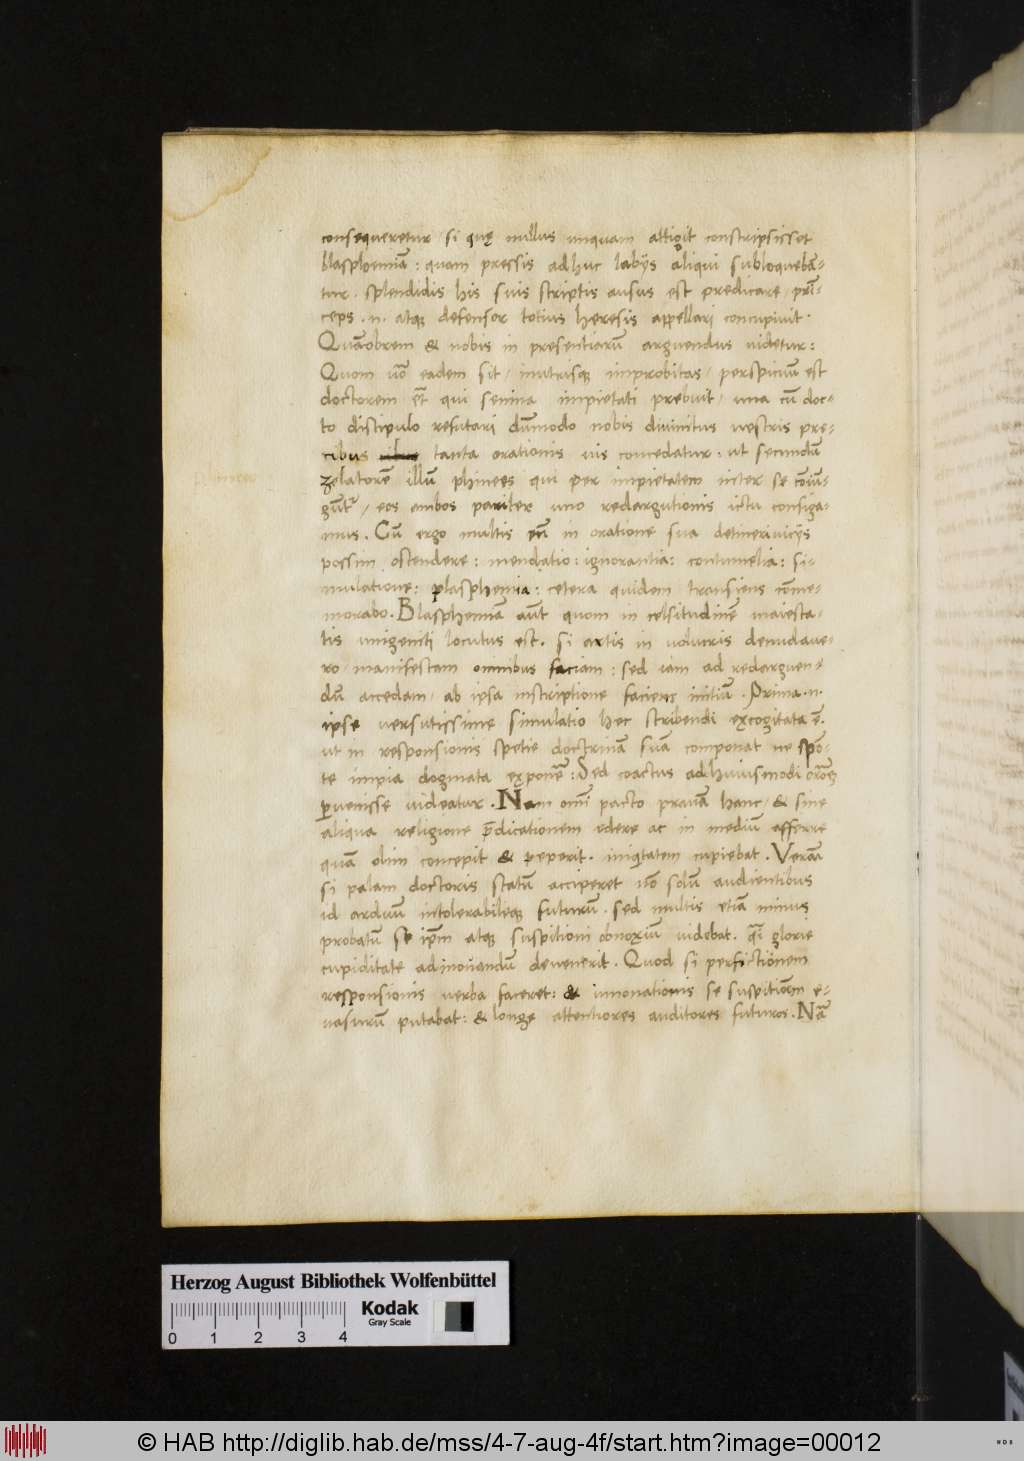 consequeretur / si quę nullus unquam attigit conscripsisset
blasphemiā : quam pressis adhuc labijs aliqui subloquebā-
tur . splendidis his suis scriptis ausus est predicare / prī-
ceps . n . atqȝ defensor totius heresis appellari concupiuit .
Quāobrem & nobis in presentiarū arguendus uidetur :
Quom uō eadem sit / inutrisqȝ improbitas / perspicuū est
doctorem ēt qui semina impietati prebuit / una cū doc-
to discipulo refutari dūmodo nobis diuinitus uestris pre-
cibus tanta orationis uis concedatur : ut secundū
zelatorē illū phinees qui per impietatem inter se cōiū-
gūtr / eos ambos pariter uno redargutionis ictu consiga-
mus . Cū ergo multis eū in oratione sua detineri uicijs
possim ostendere : mendatio : ignorantia : contumelia : si-
mulatione : plasphemia : cetera quidem transiens cōme-
morabo . Blasphemiā aūt quom in celsitudinē maiesta-
tis unigeniti locutus est . si artis in uolucris denudaue-
ro / manifestam omnibus faciam : sed iam ad redarguen-
dū accedam / ab ipsa inscriptione faciens initiū . Prima . n .
ipse uersutissime simulatio hec scribendi excogitata ē .
ut in responsionis spetie doctrinā suā componat ne spō-
te impia dogmata exponē : Sed coactus adhuiusmodi orōeȝ
ꝑuenisse uideatur . Nam omī pacto prauā hanc / & sine
aliqua religione p̄dicationem edere ac in mediū afferre
quā olim concepit & peperit . iniqitatem cupiebat . Verūm
si palam doctoris statū acciperet nō solū audientibus
id arduū intolerabileqȝ futurū . sed multis etiā minus
probatū se ipm̄ atqȝ suspitioni obnoxiū uidebat . q̄i glorie
cupiditate adinouandū deuenerit . Quod si perfictionem
responsionis uerba faceret : & innouationis se suspitiōem e-
uasurū putabat : & longe attentiores auditores futuros . Nā
Herzog August Bibliothek Wolfenbüttel
0 1 2 3 4
Kodak
Gray Scale
© HAB http://diglib.hab.de/mss/4-7-aug-4f/start.htm?image=00012